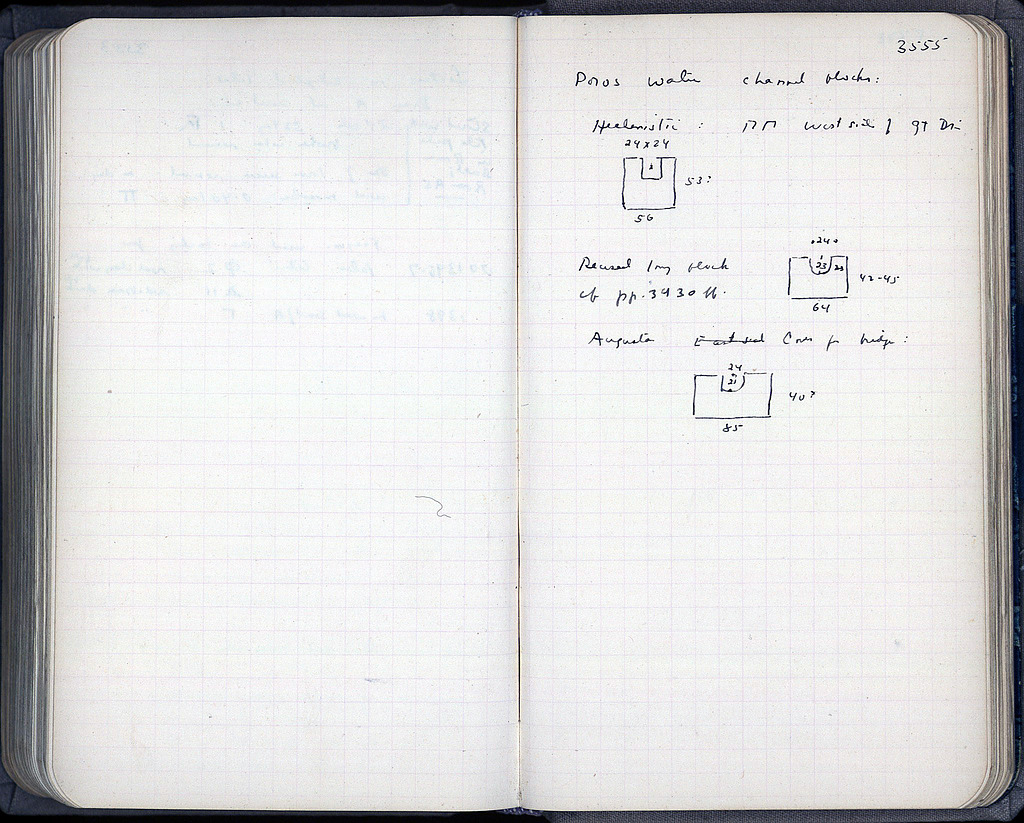 3555
Poros water channel blocks:
Hellenistic : ΠΠ west side of gt Drain
24 x 24
53?
56
Reused long block
cf pp. 3430 ff.
24
23 20
42-45
64
Augusta East side Cover for bridge :
24
21
40?
85